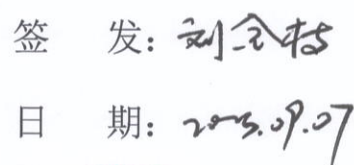 签 发: 刘金枝
日 期: 2023.09.07